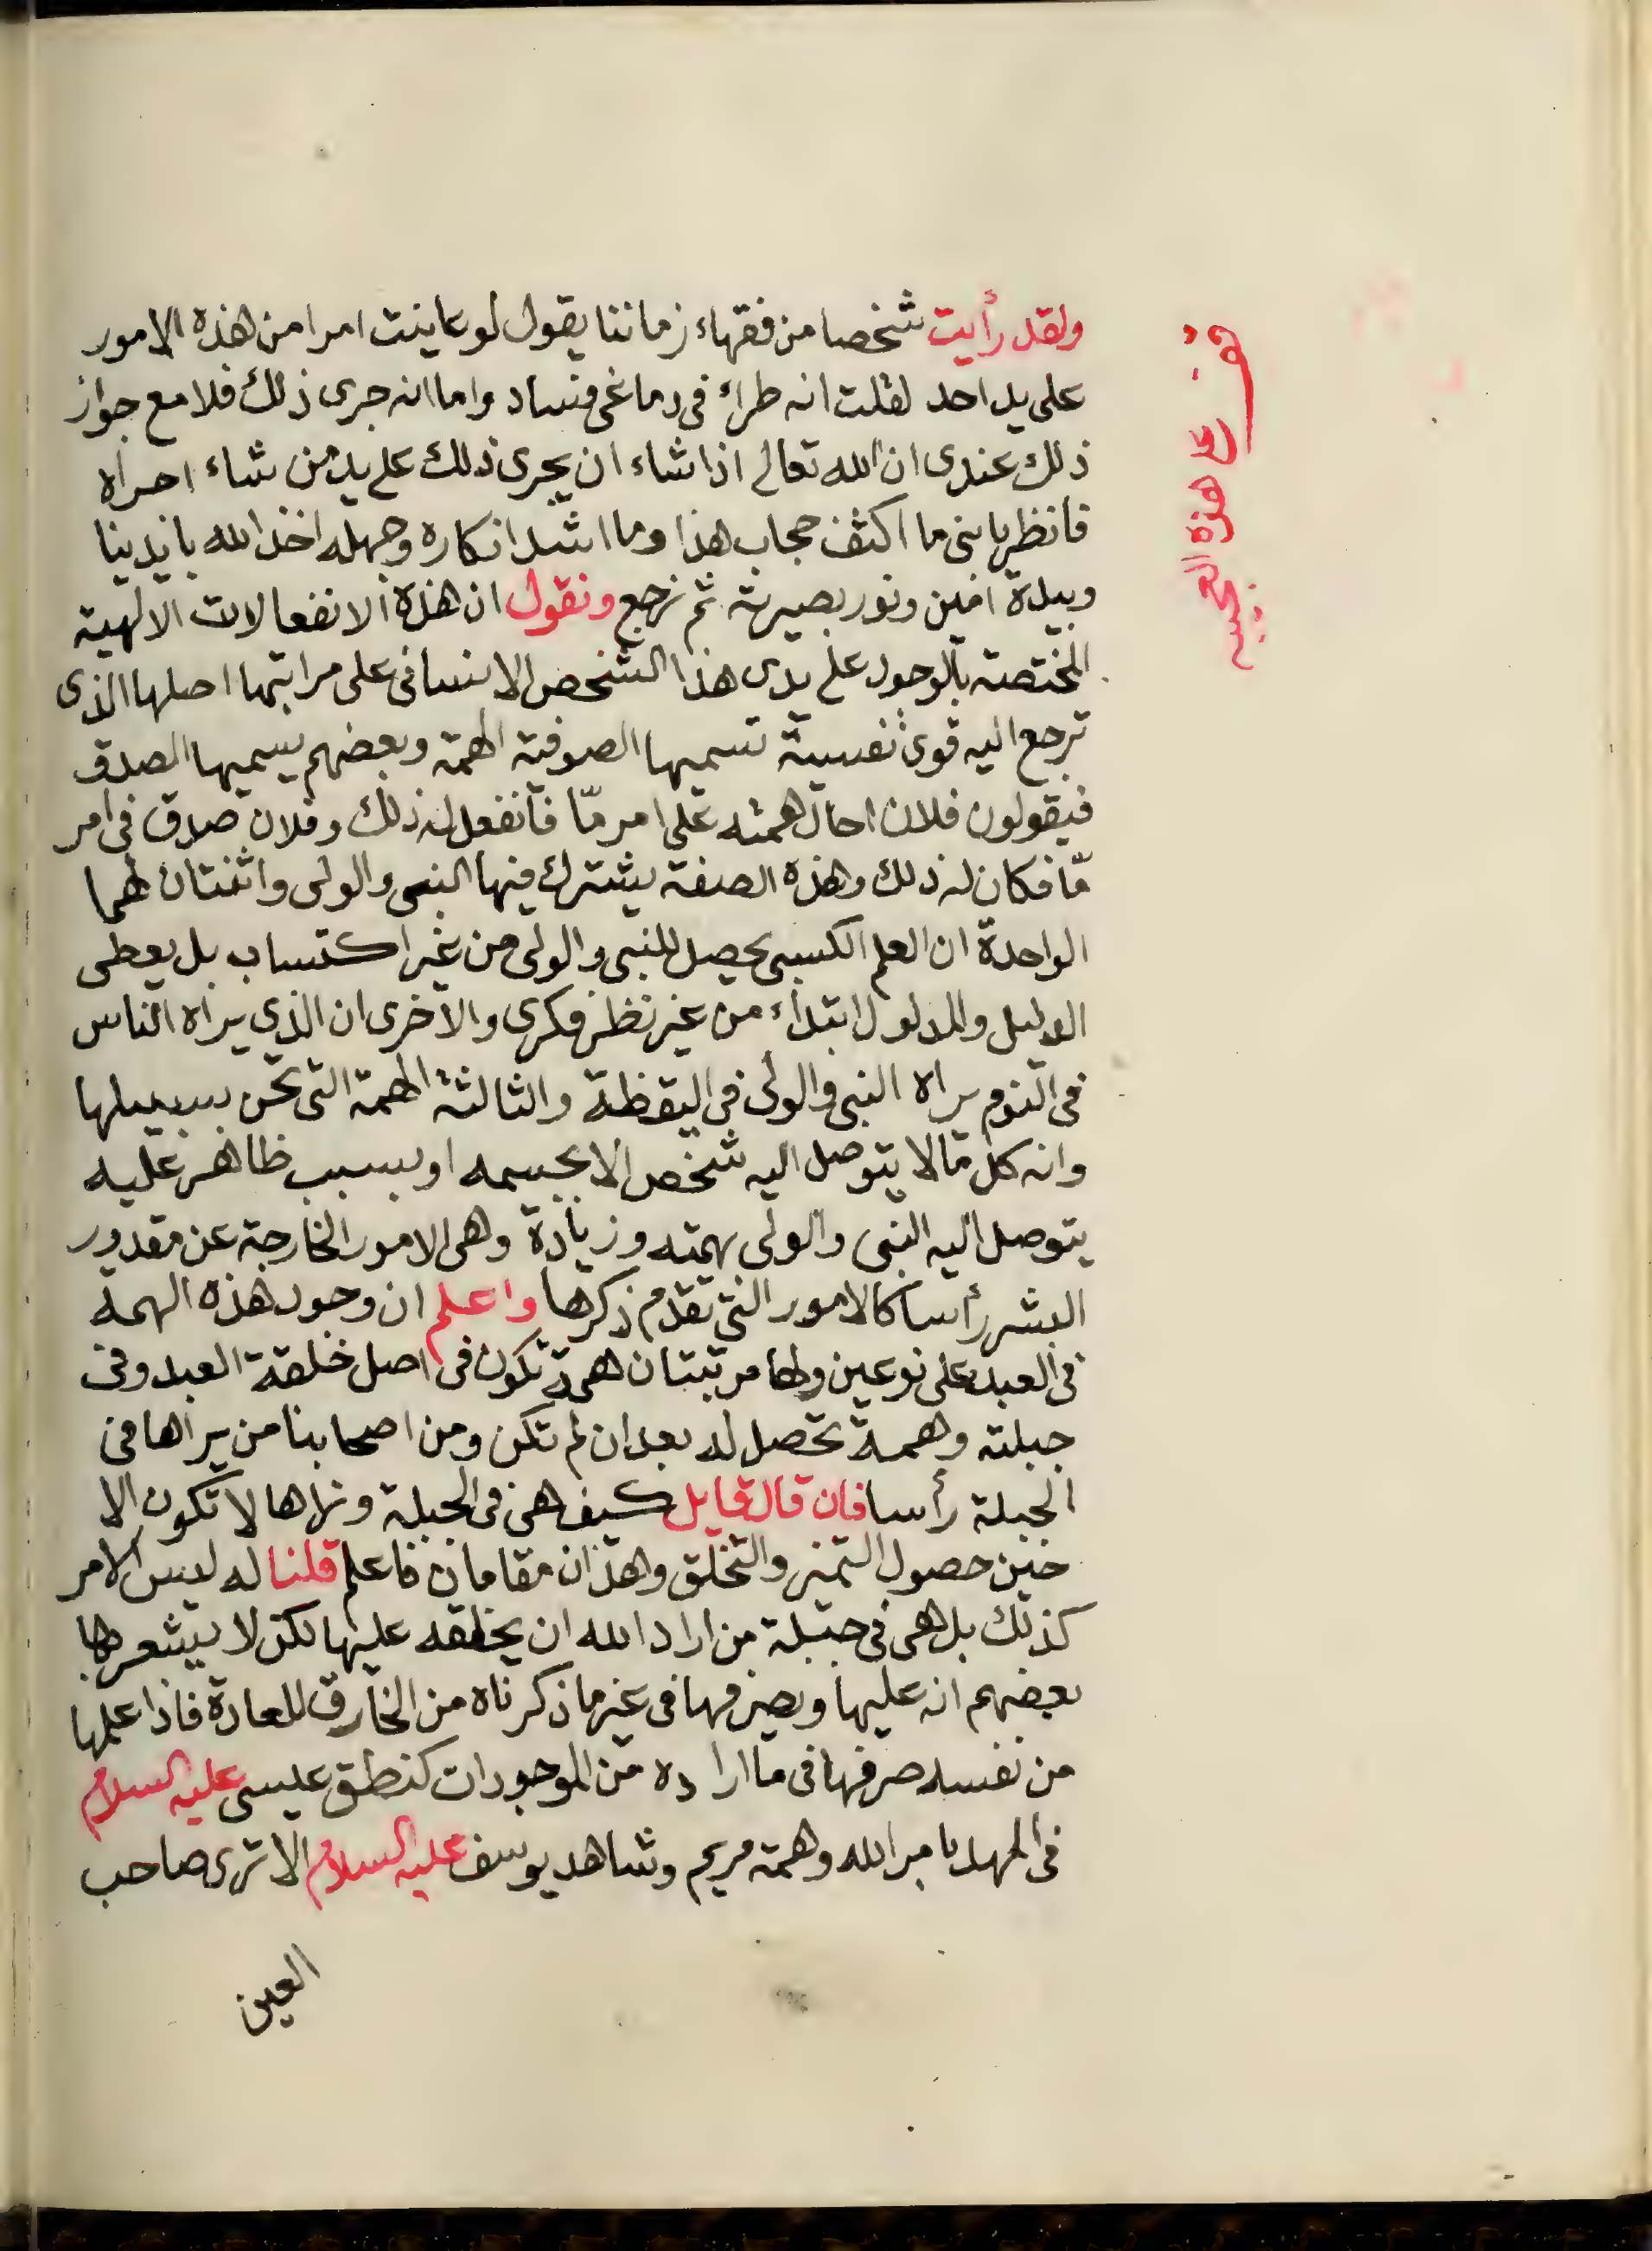 ولقد رأيت شخصا من فقهاء زماننا يقول لو عاينت امرا من هذه الامور
على يد احد لقلت انه طراء في دماغي فساد واما انه جرى ذلك فلا مع جواز
ذلك عندى ان الله تعالى اذا شاء ان يجرى ذلك على يد من شاء اجراه
فانظر يا بنى ما اكثف حجاب هذا وما اشد انكاره وجهله اخذ الله بايدينا
وبيده امين ونور بصيرته ثم نرجع ونقول ان هذه الانفعالات الالهية
المختصة بالوجود على يدى هذا الشخص الانسانى على مراتبها اصلها الذى
ترجع اليه قوى نفسية تسميها الصوفية الهمة وبعضهم يسميها الصدق
فيقولون فلان احال همته على امر مّا فانفعل له ذلك وفلان صدق في امر
مّا فكان له ذلك وهذه الصفة يشترك فيها النبى والولى واثنتان لهما
الواحدة ان العلم الكسبى يحصل للنبى والولى من غير اكتساب بل يعطى
الدليل والمدلول ابتداء من غير نظر فكرى والاخرى ان الذي يراه الناس
فى النوم يراه النبى والولى فى اليقظة والثالثة الهمة التى نحن بسبيلها
وانه كل ما لا يتوصل اليه شخص الا بجسمه او بسبب ظاهر عليه
يتوصل اليه النبى والولى بهمته وزيادة وهى الامور الخارجة عن مقدور
البشر رأسا كالامور التى تقدم ذكرها واعلم ان وجود هذه الهمة
فى العبد على نوعين ولها مرتبتان همة تكون فى اصل خلقة العبد وفى
جبلته وهمة تحصل له بعد ان لم تكن ومن اصحابنا من يراها فى
الجبلة رأسا فان قال قايل كيف هى فى الجبلة ونراها لا تكون الا
حين حصول التميز والتخلق وهذان مقامان فاعلم قلنا له ليس الامر
كذلك بل هى فى جبلة من اراد الله ان يخلقه عليها لكن لا يشعر بها
بعضهم انه عليها ويصرفها فى غير ما ذكرناه من الخارق للعادة فاذا علمها
من نفسه صرفها فى ما اراده من الموجودات كنطق عيسى عليه السلام
فى المهد بامر الله وهمة مريم وشاهد يوسف عليه السلام الا ترى صاحب
العين
قف على هذه العجيبه